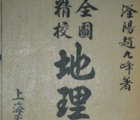 滏陽趙九峰著
全圖
精校
地理
上海